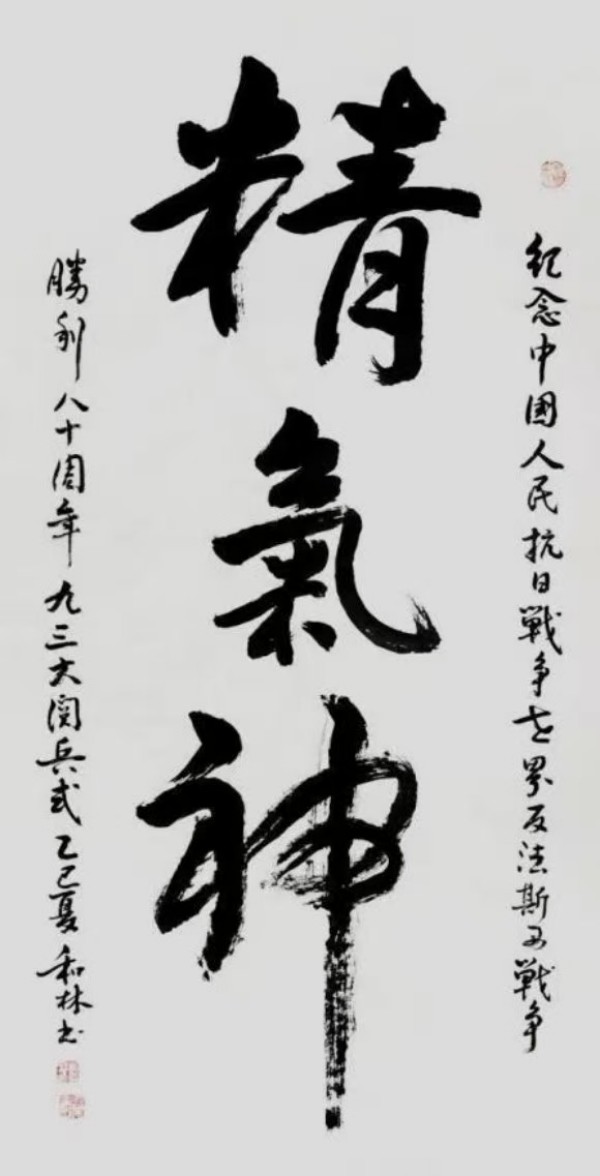 紀念中國人民抗日戰争世界反法斯西戰争
精氣神
勝利八十周年九三大閱兵式乙巳夏和林书